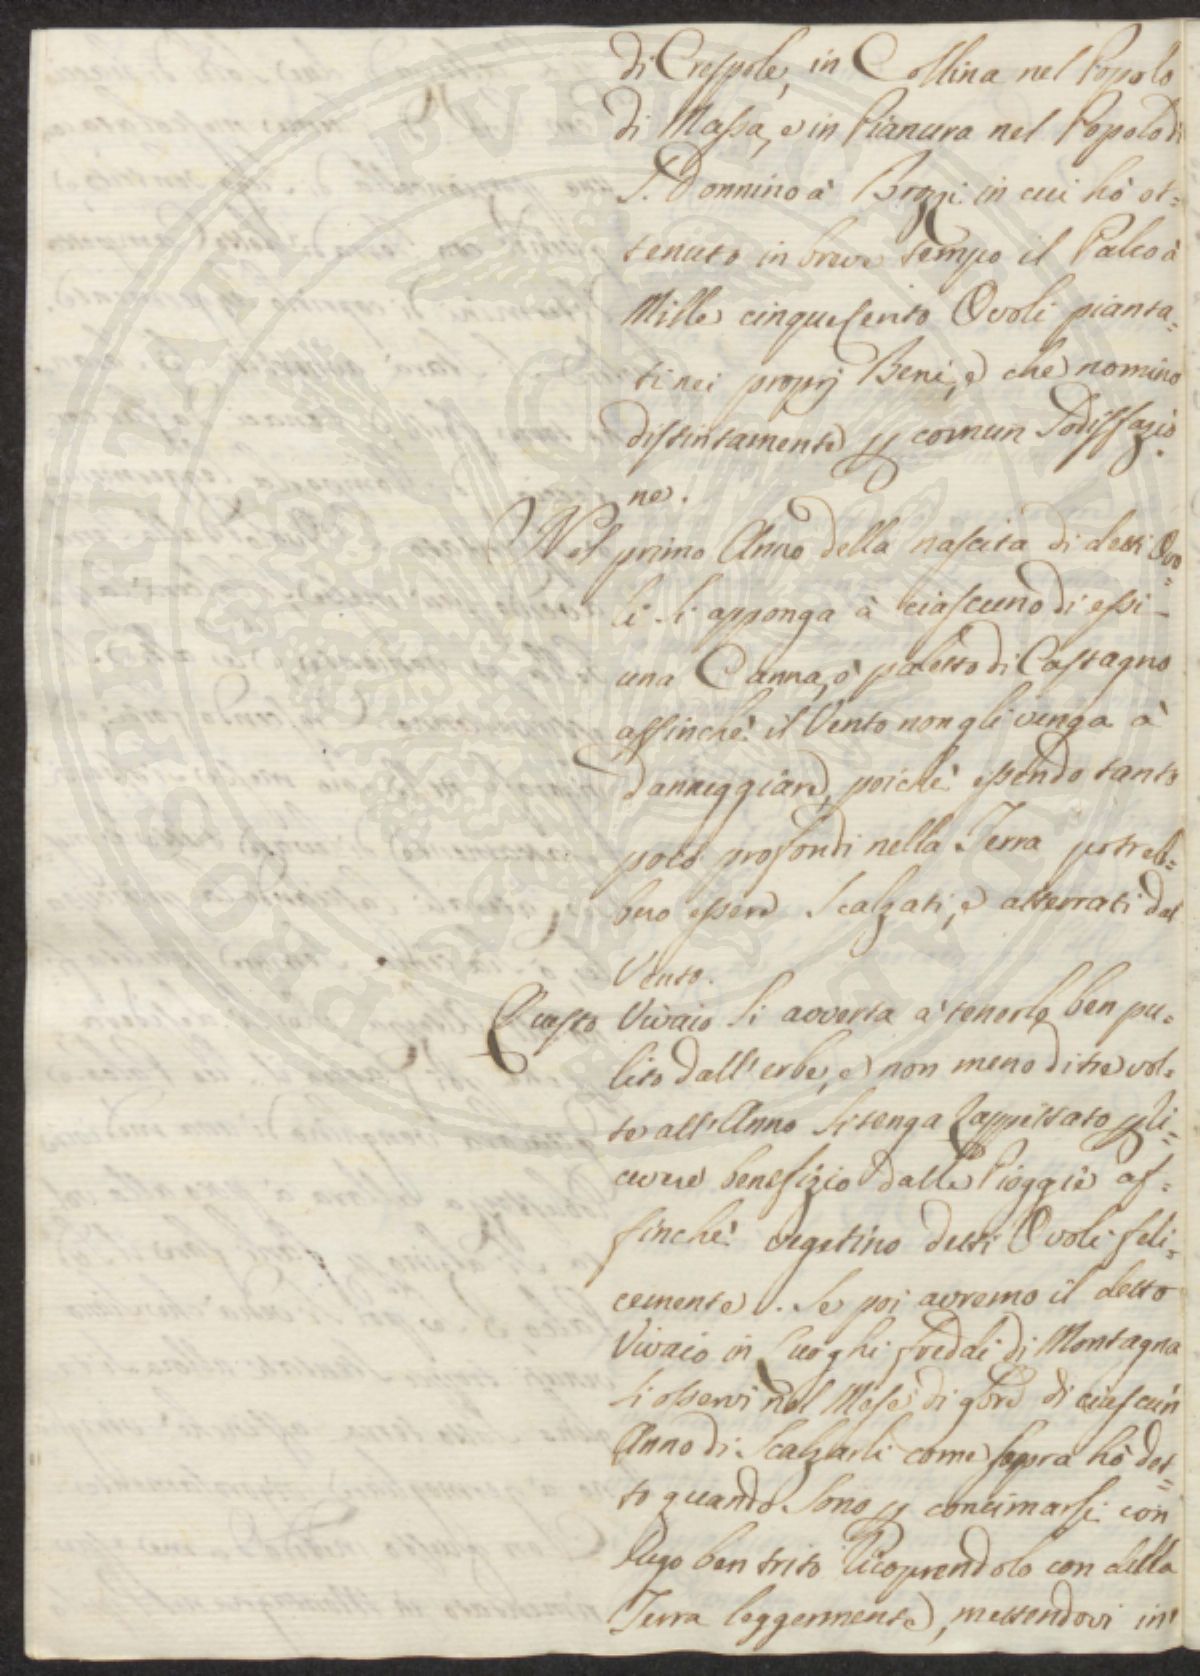 di Crespole, in Collina nel Popolo
di Massa, e in Pianura nel Popolo di
S. Donnino à Brozzi in cui hò ot=
tenuto in breve tempo il Palco à
Mille cinquecento Ovoli pianta=
ti nei proprj Beni, e che nomino
distintamente p comun Sodisfazio
ne.
Nel primo Anno della nascita di detti Ovo=
li si apponga à ciascuno di essi
una Canna, ò paletto di Castagno
affinchè il Vento non gli venga à
danneggiare, poichè essendo tanto
poco profondi nella Terra potreb=
bero essere Scalzati, e atterrati dal
Vento.
Questo Vivaio si avverta à tenerlo ben pu=
lito dall'erbe, e non meno di tre vol=
te all'Anno si tenga Zappettato p ri=
cevere benefizio dalle Pioggie af=
finchè vegetino detti Ovoli feli=
cemente. Se poi avremo il detto
Vivaio in Luoghi freddi di Montagna
si osservi nel Mese di 9bre di ciascun
Anno di Scalzarli come sopra hò det=
to quando sono p concimarsi con
Sugo ben trito Ricoprendolo con della
Terra leggermente, mettendovi in
PROSPERITATI PVBLICAE